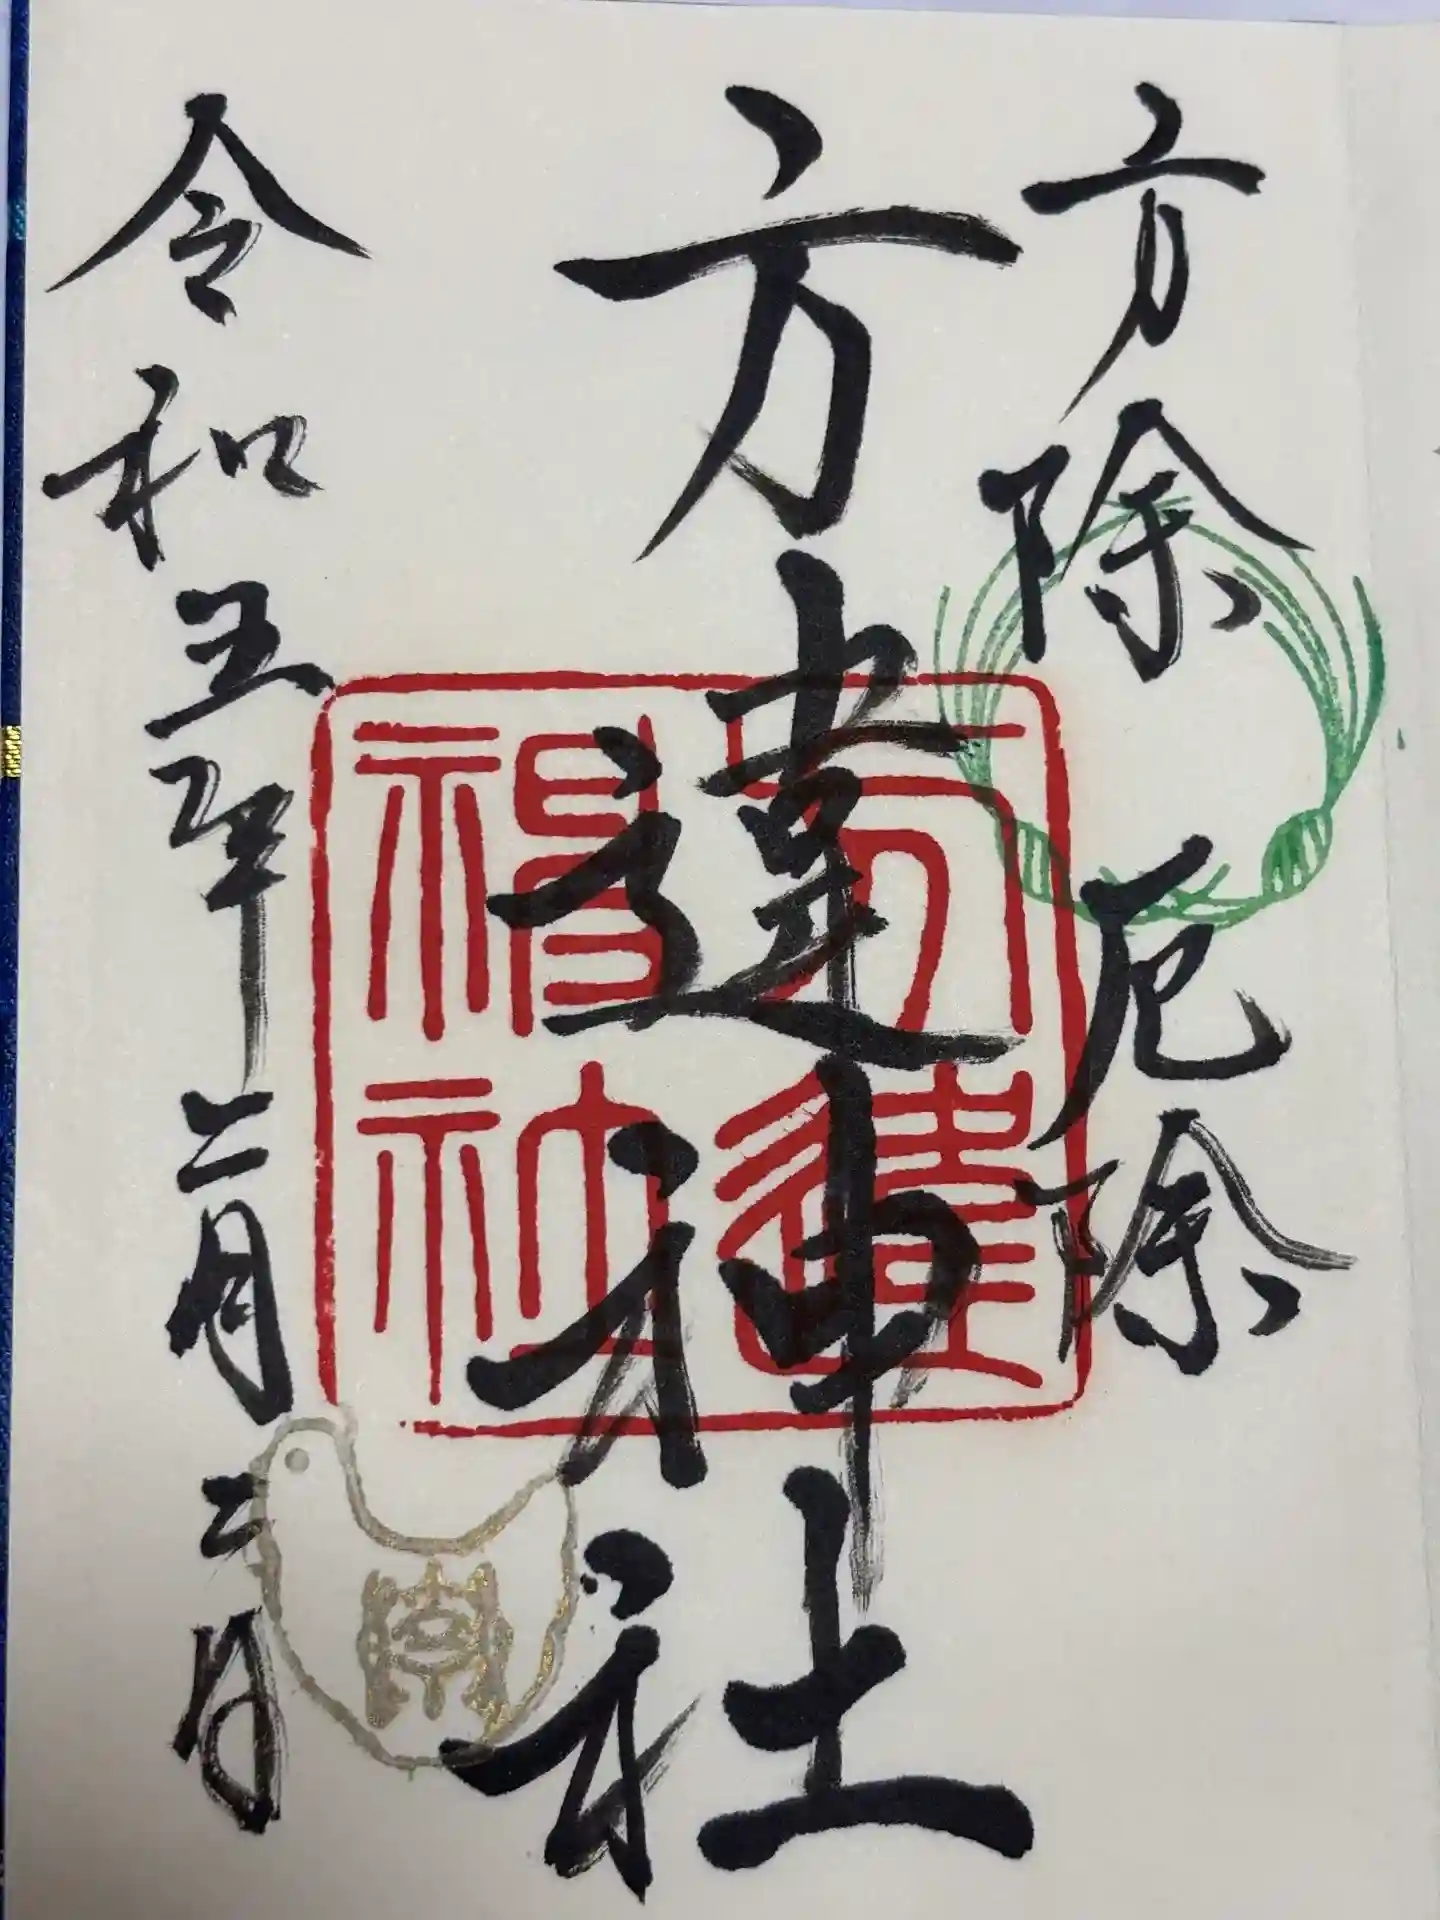 方除 厄除
方違神社
方違
神社
令和五年二月二日